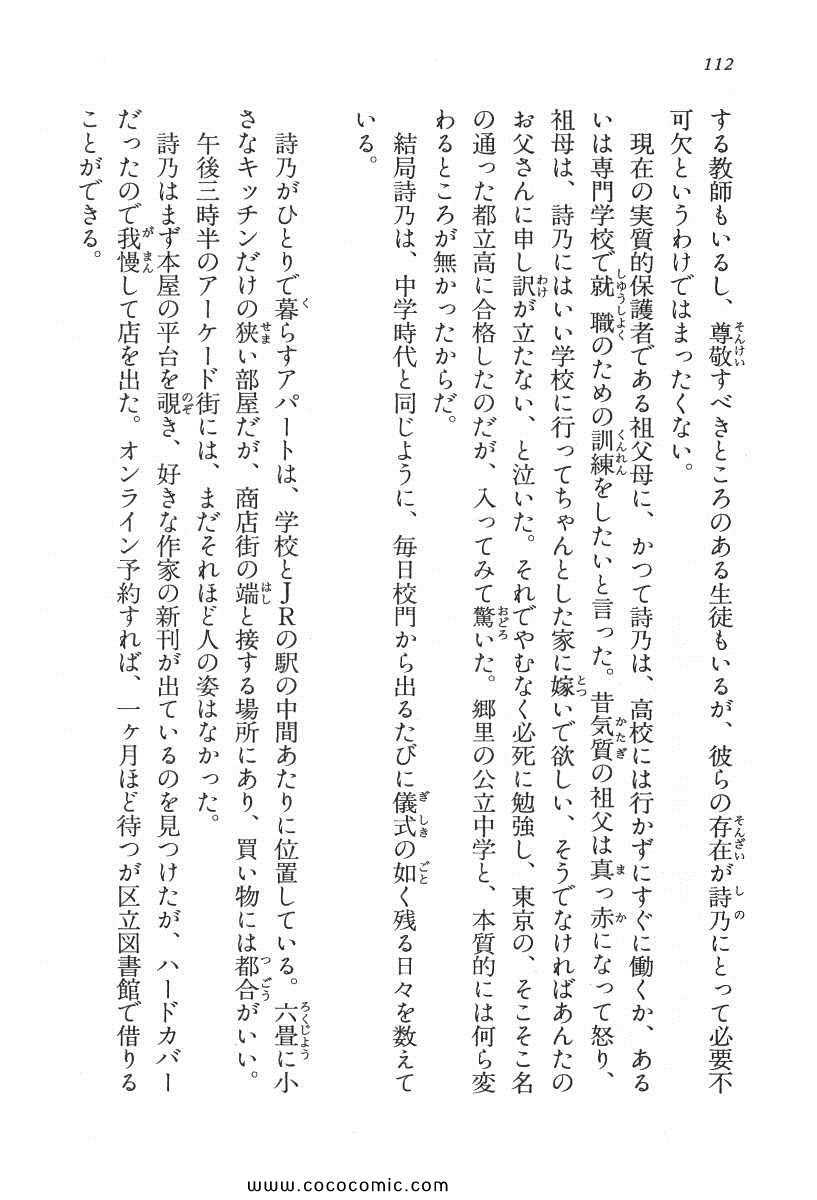 112
する教師もいるし、尊敬すべきところのある生徒もいるが、彼らの存在が詩乃にとって必要不
可欠というわけではまったくない。
現在の実質的保護者である祖父母に、かつて詩乃は、高校には行かずにすぐに働くか、ある
いは専門学校で就職のための訓練をしたいと言った。昔気質の祖父は真っ赤になって怒り、
祖母は、詩乃にはいい学校に行ってちゃんとした家に嫁いで欲しい、そうでなければあんたの
お父さんに申し訳が立たない、と泣いた。それでやむなく必死に勉強し、東京の、そこそこ名
の通った都立高に合格したのだが、入ってみて驚いた。郷里の公立中学と、本質的には何ら変
わるところが無かったからだ。
結局詩乃は、中学時代と同じように、毎日校門から出るたびに儀式の如く残る日々を数えて
いる。
詩乃がひとりで暮らすアパートは、学校とJRの駅の中間あたりに位置している。六畳に小
さなキッチンだけの狭い部屋だが、商店街の端と接する場所にあり、買い物には都合がいい。
午後三時半のアーケード街には、まだそれほど人の姿はなかった。
詩乃はまず本屋の平台を覗き、好きな作家の新刊が出ているのを見つけたが、ハードカバー
だったので我慢して店を出た。オンライン予約すれば、一ヶ月ほど待つが区立図書館で借りる
ことができる。
www.cococomic.com